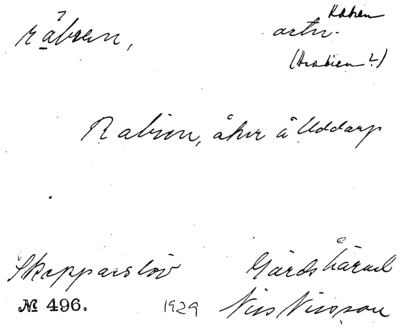 räbsen, ortn.
Rabien
(Arabien?)
Rabien, åker å Uddarp
Skepparslöv Gärds härad
№ 496. 1929 Nils Nilsson